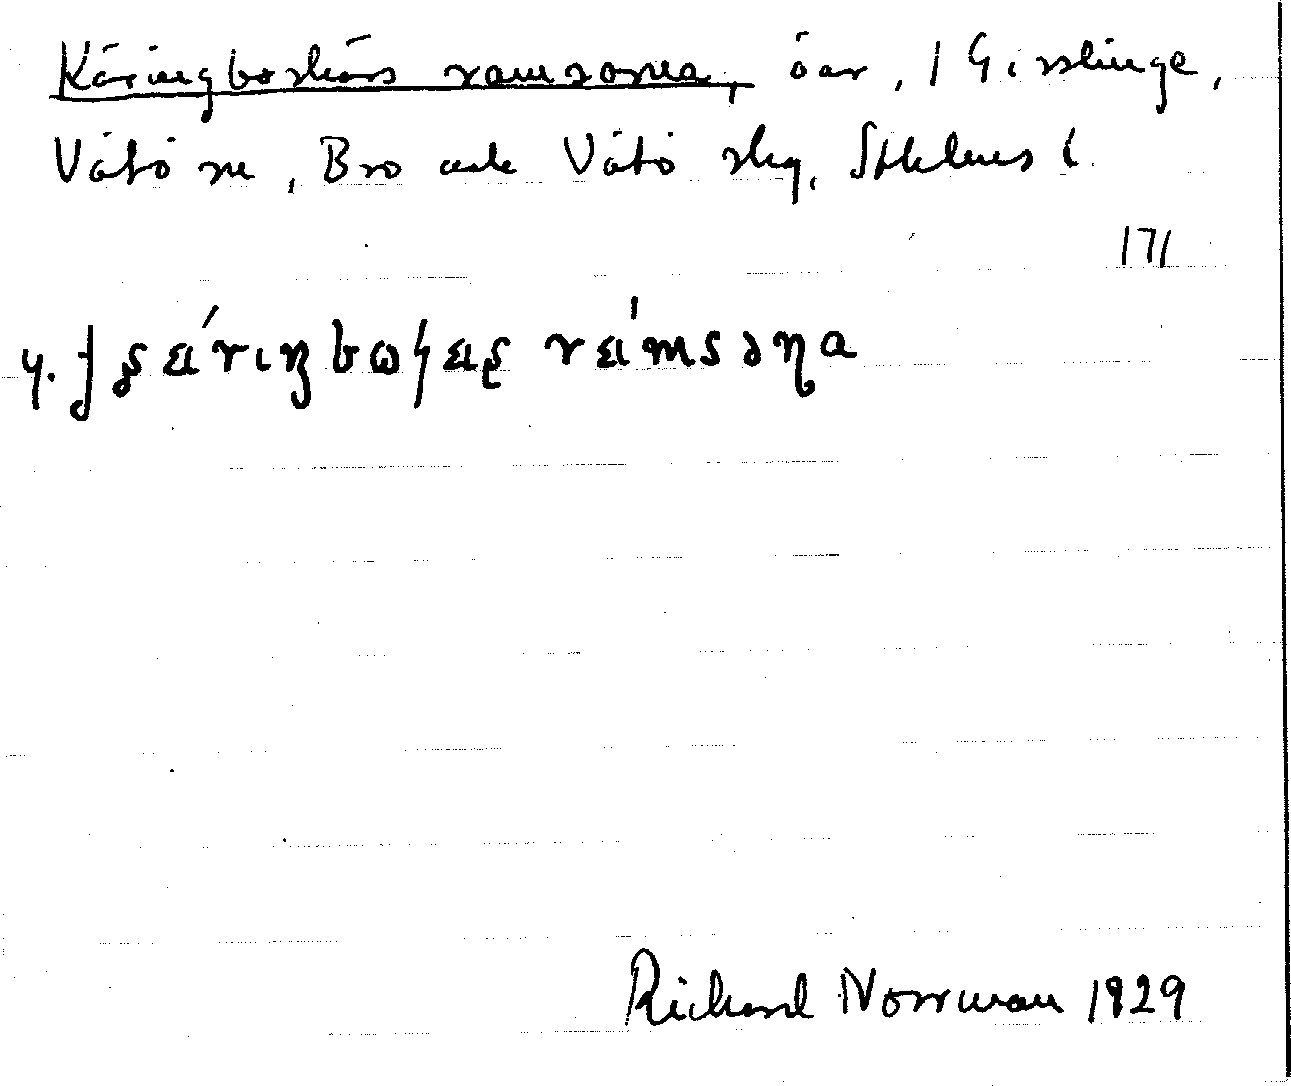 Käringboskärs ramsorna, öar, 1 Gisslinge,
Vätö sn, Bro och Vätö skg, Sthlms l.
171
Richard Norrman 1929